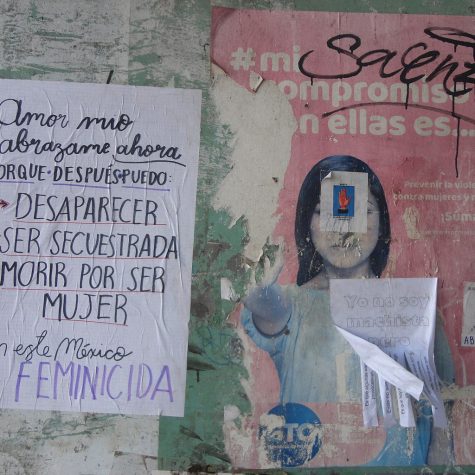 Amor mio
abrázame ahora
ORQUE DESPUÉS PUEDO:
DESAPARECER
SER SECUESTRADA
MORIR POR SER
MUJER
n este México
FEMINICIDA
#mi
ompromiso
n ellas es...
Saenz
Prevenir la viole
contra mujeres y n
¡Súm
Yo no soy
machista
pero
GTO
AB